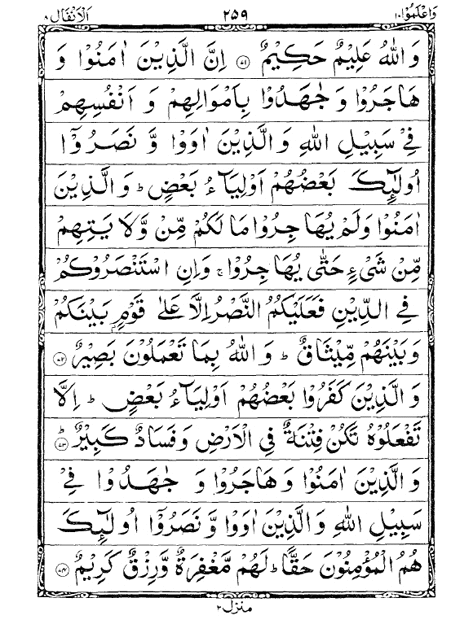 وَاعْلَمُوْٓا ١٠ ٢٥٩ اَلْاَنْفَال ٨
وَاللّٰهُ عَلِيْمٌ حَكِيْمٌ ۝٧١ اِنَّ الَّذِيْنَ اٰمَنُوْا وَ
هَاجَرُوْا وَجٰهَدُوْا بِاَمْوَالِهِمْ وَ اَنْفُسِهِمْ
فِيْ سَبِيْلِ اللّٰهِ وَالَّذِيْنَ اٰوَوْا وَّ نَصَرُوْٓا
اُولٰٓئِكَ بَعْضُهُمْ اَوْلِيَآءُ بَعْضٍ ؕ وَالَّذِيْنَ
اٰمَنُوْا وَلَمْ يُهَاجِرُوْا مَا لَكُمْ مِّنْ وَّلَايَتِهِمْ
مِّنْ شَيْءٍ حَتّٰى يُهَاجِرُوْا ۚ وَاِنِ اسْتَنْصَرُوْكُمْ
فِي الدِّيْنِ فَعَلَيْكُمُ النَّصْرُ اِلَّا عَلٰى قَوْمٍۭ بَيْنَكُمْ
وَبَيْنَهُمْ مِّيْثَاقٌ ؕ وَاللّٰهُ بِمَا تَعْمَلُوْنَ بَصِيْرٌ ۝٧٢
وَالَّذِيْنَ كَفَرُوْا بَعْضُهُمْ اَوْلِيَآءُ بَعْضٍ ؕ اِلَّا
تَفْعَلُوْهُ تَكُنْ فِتْنَةٌ فِي الْاَرْضِ وَفَسَادٌ كَبِيْرٌ ؕ۝٧٣
وَالَّذِيْنَ اٰمَنُوْا وَهَاجَرُوْا وَ جٰهَدُوْا فِيْ
سَبِيْلِ اللّٰهِ وَالَّذِيْنَ اٰوَوْا وَّ نَصَرُوْٓا اُولٰٓئِكَ
هُمُ الْمُؤْمِنُوْنَ حَقًّا ؕ لَهُمْ مَّغْفِرَةٌ وَّرِزْقٌ كَرِيْمٌ ۝٧٤
منزل ٢